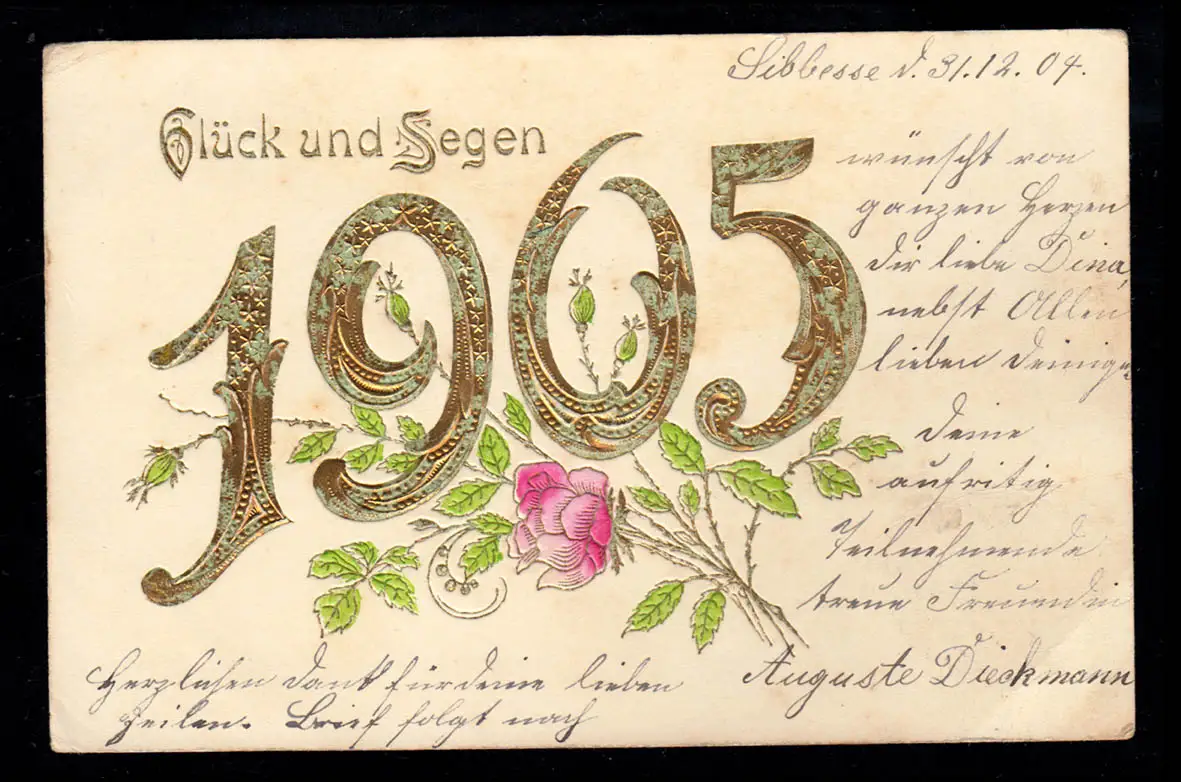 Sibbesse d. 31.12.04.
Glück und Segen
1905
wünscht von
ganzen Herzen
dir liebe Dina,
nebst Allen
lieben Deinigen
Deine
aufritig
Teilnehmende
treue Freundin
Auguste Dieckmann
Herzlichen Dank für deine lieben
Zeilen. Brief folgt nach